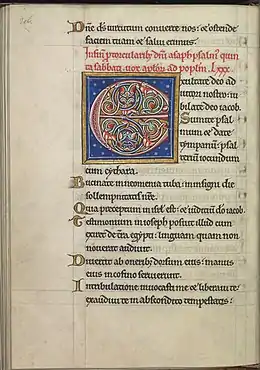 Dñe ds̄ uirtutum conuerte nos: ⁊ ostende
faciem tuam ⁊ salui erimus.
In finē p torcularibꝫ
quin
ta sabbati LXXX.
Exultate deo ad
iutori nostro: iu
bilate deo iacob.
Sumite psal
mum ⁊ date
tympanū: psal
teriū iocundum
cum cythara.
Bucinate in neomenia tuba: in insigni die
sollempnitatis
Quia preceptum in isrł est: ⁊ iudiciū dō iacob.
Testimonium in ioseph posuit illud cum
exiret de t̄ra egypti: linguam quam non
nouerat audiuit.
Diuertit ab oneribꝫ dorsum eius: manus
eius in cofino seruierunt.
In tribulatione inuocasti me ⁊ liberaui te:
exaudiui te in abscondito tempestatis: